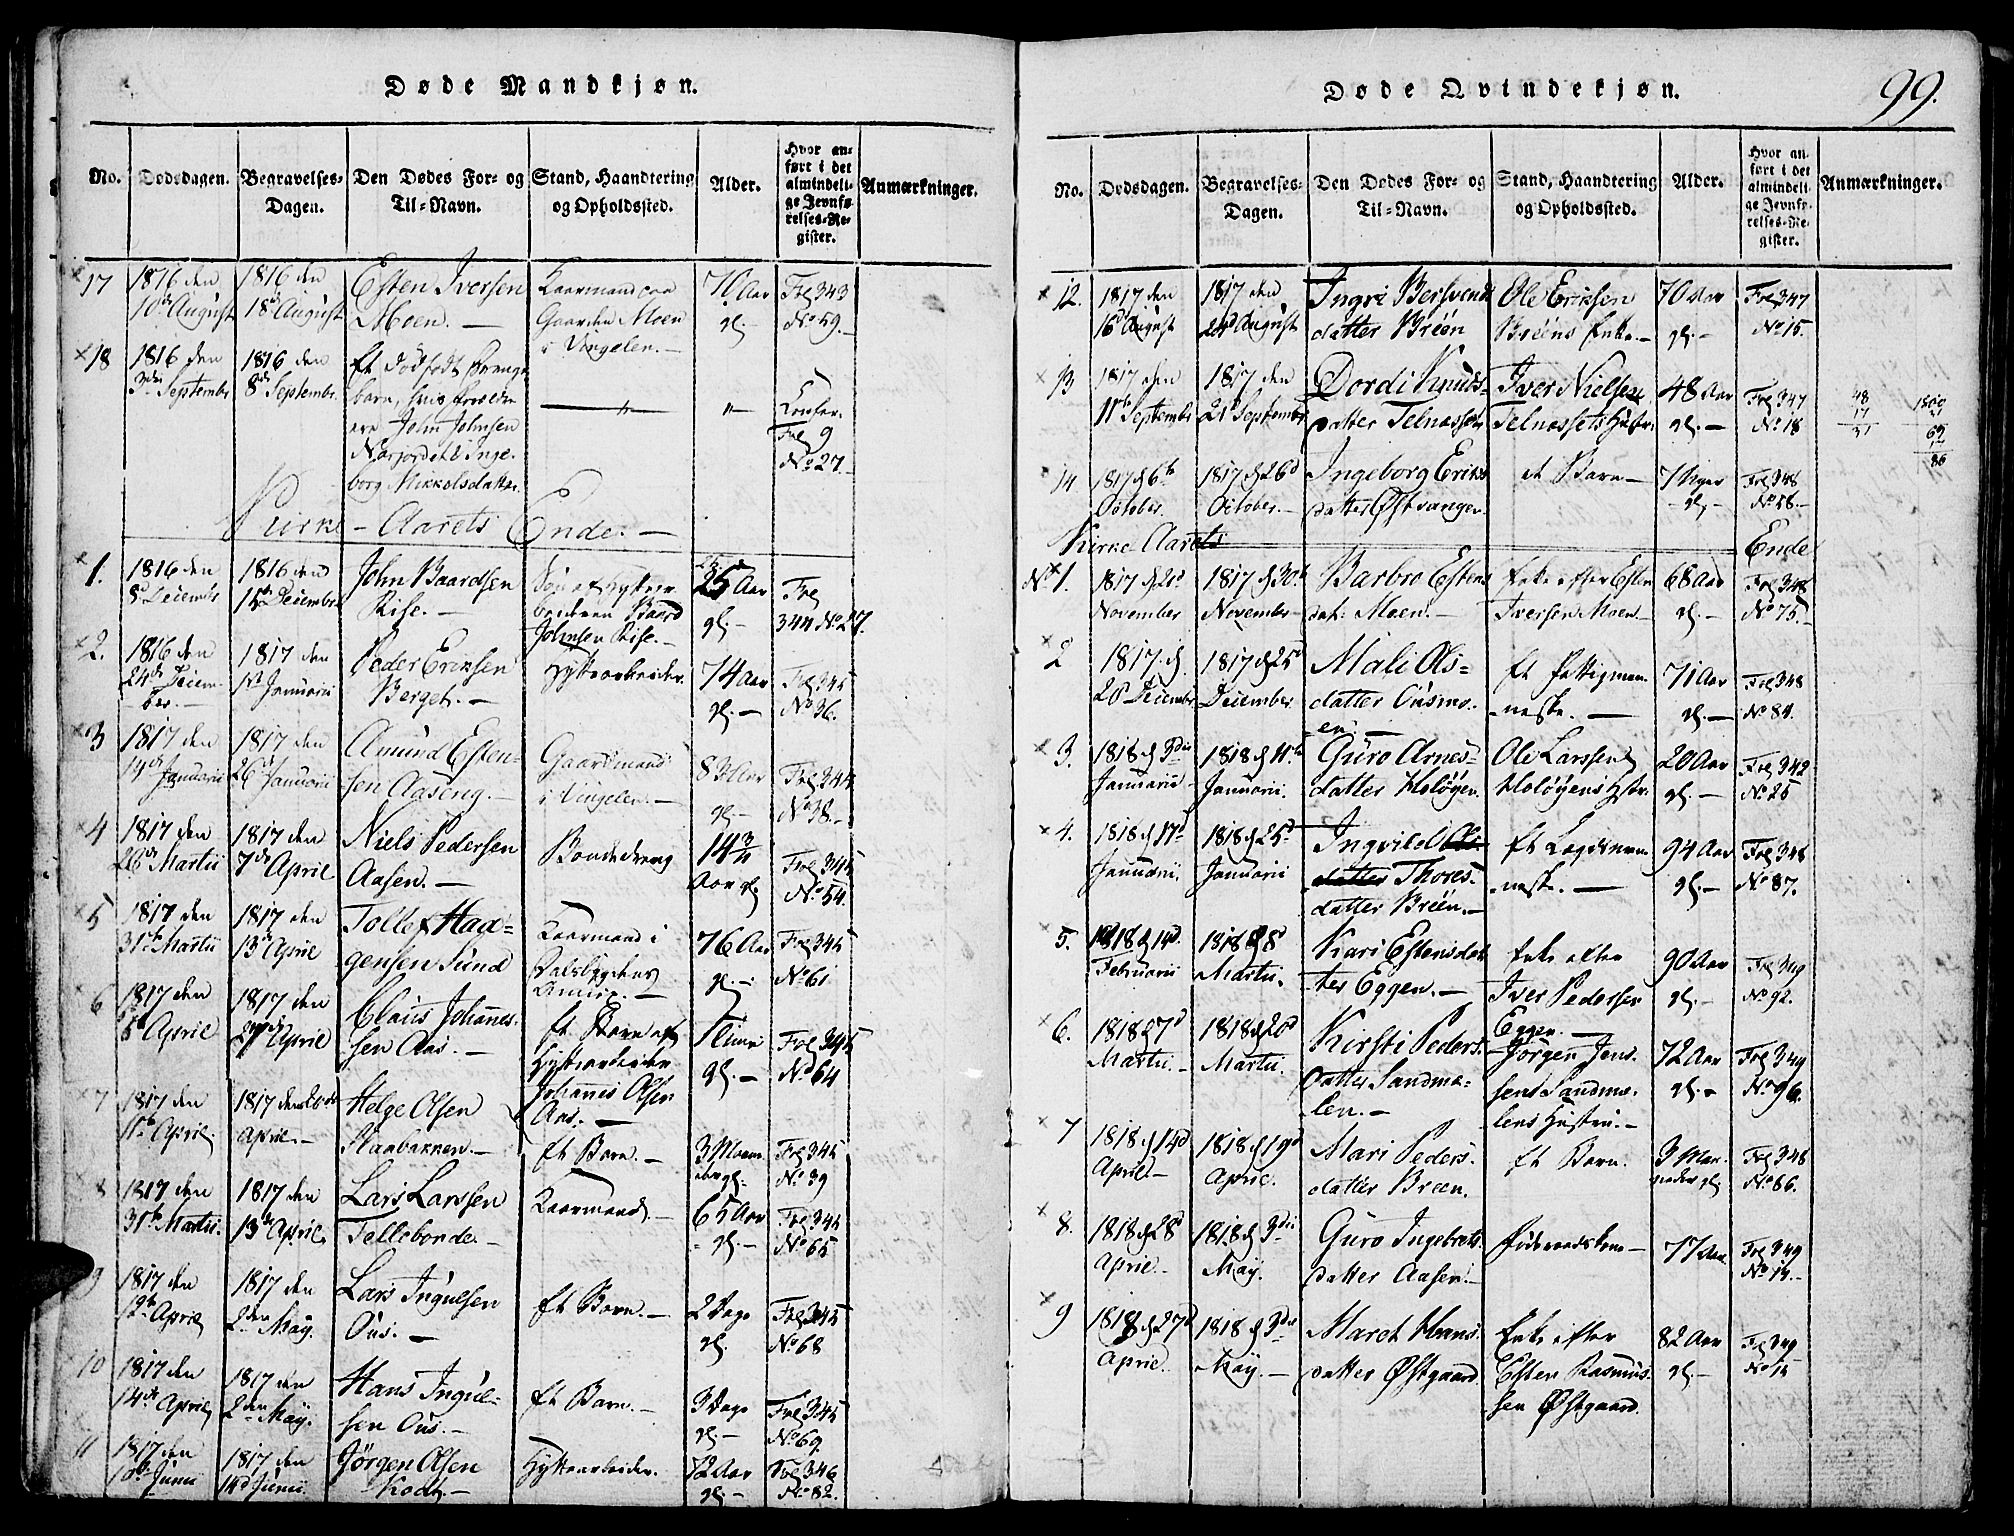 Døde Mandkjøn.
No.
Dødsdagen.
Begravelses-
Dagen.
Den Dødes For- og
Til-Navn.
Stand, Haandtering
og Opholdssted.
Alder.
Hvor an-
ført i det
almindeli-
ge Jevnfø-
relses-Re-
gister.
Anmærkninger.
17
1816 den
10de August
1816 den
18de August
Esten Iversen
Moen. —
Kaarmand paa
Gaarden Moen
i Vingelen. —
70 Aar
gl. —
Fol 343
No 59. —
18
1816 den
3die September
1816 den
8de September.
Et dødfødt Drenge
barn, hvis Forældre
ere John Johnsen
Narjordet & Inge-
borg Mikkelsdatter.
— " —
"—
Confer.
Fol 9
No 27.
Kirke-Aarets Ende. —
1.
1816 den
8de Decembr
1816 den
15de Decembr
John Baardsen
Rise. —
Søn af Hytter
bonden Baard
Johnsen Rise. —
25 Aar
gl. —
Fol
344 No 27.
2.
1816 den
24de Decem-
ber. —
1817 den
1ste Januarii
Peder Eriksen
Berget. —
Hyttearbeider.
74 Aar
gl. —
Fol 345
No 36.
3
1817 den
14de Januarii
1817 den
26de Januarii
Amund Esten-
sen Aaseng. —
Gaardmand
i Vingelen. —
83 Aar
gl. —
Fol 344
No 38. —
4
1817 den
26de Martii
1817 den
7de April
Niels Pedersen
Aasen. —
Bondedreng
14 3/4
Aar gl.
Fol 345
No 54.
5
1817 den
31te Martii
1817 den
13de April
Tollef Haa-
gensen Sund
Kaarmand i
Dalsbygdens
76 Aar
gl. —
Fol 345
No 61
6
1817 den
5te April
1817 den
27de April
Claus Johannes-
sen Aas. —
Et Barn af
Hyttearbeider
Johannes Olsen
Aas. —
1 Time
gl. —
Fol 345
No 64
7
1817 den
11te April
1817 den
April. —
Helge Olsen
Raabakken. —
Et Barn. —
3 Maane-
der gl.
Fol 345
No 39
8
1817 den
31te Martii.
1817 den
13de April
Lars Larssen
Tellebonde. —
Kaarmand. —
65 Aar
gl. —
Fol 345
No 65
9
1817 den
12te April
1817 den
2den May.
Lars Ingulsen
Ous. —
Et Barn. —
2 Dage
gl.
Fol 345
No 68
10
1817 den
14de April
1817 den
2den May.
Hans Ingul-
sen Ous. —
Et Barn. —
3 Dage
gl. —
Fol 345
No 69.
11
1817 den
10de Junii
1817 den
14de Junii
Jørgen Olsen
Koch —
Hyttearbeider.
72 Aar
gl. —
Fol 346
No 82.
Døde Qvindekjøn.
99.
No.
Dødsdagen.
Begravelses-
Dagen.
Den Dødes For- og
Til-Navn.
Stand, Haandtering
og Opholdssted.
Alder.
Hvor an-
ført i det
almindeli-
ge Jevnfø-
relses-Re-
gister.
Anmærkninger.
12.
1817 den
16de August
1817 den
24de August
Ingri Bersvends
datter Bröen
Ole Eriksen
Bröens Enke. —
70 Aar
gl. —
Fol 347
No 15.
13
1817 den
11te Septembr
1817 den
21de September
Dordi Knuds-
datter Telnesset
Iver Nielsen
Telnessets Hustr.
48 Aar
gl. —
Fol 347
No 18
48
17
31
1800
69
17
86
14
1817 d 6te
October.
1817 d 26d
October. —
Ingeborg Eriks
datter Østvangen.
et Barn —
7 Uger
gl. —
Fol 348
No 58. —
Kirke Aarets
Ende
No 1.
1817 d 2d
November
1817 d 30te
November —
Barbro Estens
dat: Moen. —
Enke efter Esten
Iversen Moen. —
68 Aar
gl. —
Fol 348
No 75. —
2
1817. d
20d December
1817 d 25d
December
Mali Ols-
datter Ousmo-
en. —
Et Fattigmen-
neske. —
71 Aar
gl. —
Fol 348
No 84.
3.
1818 d 3die
Januarii
1818 d 11te
Januarii.
Guro Arnes-
datter Holøyen.
Ole Larssen
Holøyens Hstr.
20 Aar
gl. —
Fol 342
No 25
4.
1818 d 17d
Januarii.
1818 d 25d
Januarii
Ingvild Ols-
datter Thores-
datter Bröen. —
Et Lægdsmen-
neske. —
94 Aar
gl. —
Fol 348
No 87.
5.
1818 d 14d
Februarii
1818 d 8d
Martii.
Kari Estensdat
ter Eggen. —
Enke efter
Iver Pedersen
Eggen. —
90 Aar
gl. —
Fol 349
No 92.
6.
1818 d 7d
Martii. —
1818 d 20d
Martii.
Kirsti Peders-
datter Sandmo-
len. —
Jörgen Jens-
sens Sandmo-
lens Hustru. —
72 Aar
gl. —
Fol 349
No 96.
7
1818 d 14d
April —
1818 d 19d
April.
Mari Peders-
datter Bröen.
Et Barn.
3 Maa-
neder gl.
Fol 348
No 86.
8.
1818 d 28d
April. —
1818 d 3die
May.
Guro Ingebrets-
datter Aasen. —
Föderaadskone —
77 Aar
Fol 349
No 14. —
9
1818 d 27d
April.
1818 d 3die
May. —
Maret Hans-
datter Østgaard.
Enke efter
Esten Rasmus-
sen Østgaard.
82 Aar
gl. —
Fol 349
No 15